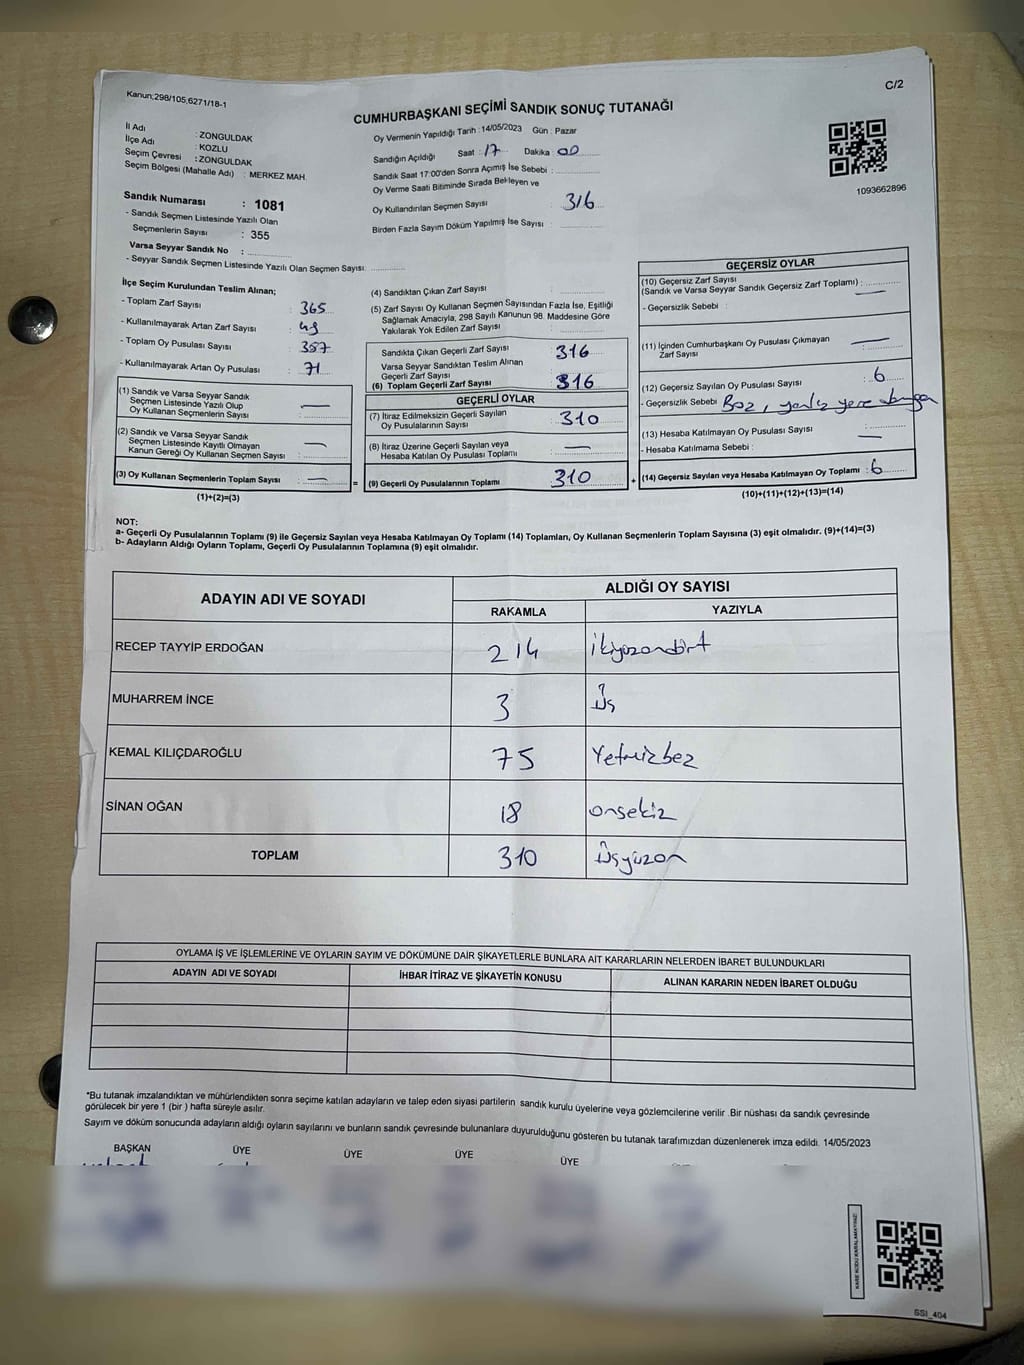 Kanun;298/105;6271/18-1
C/2
CUMHURBAŞKANI SEÇİMİ SANDIK SONUÇ TUTANAĞI
İl Adı : ZONGULDAK
İlçe Adı : KOZLU
Seçim Çevresi : ZONGULDAK
Seçim Bölgesi (Mahalle Adı) : MERKEZ MAH.
Sandık Numarası : 1081
- Sandık Seçmen Listesinde Yazılı Olan
Seçmenlerin Sayısı : 355
Varsa Seyyar Sandık No :
- Seyyar Sandık Seçmen Listesinde Yazılı Olan Seçmen Sayısı:
Oy Vermenin Yapıldığı Tarih : 14/05/2023 Gün : Pazar
Sandığın Açıldığı Saat : 17 Dakika : 00
Sandık Saat 17:00'den Sonra Açımış İse Sebebi :
Oy Verme Saati Bitiminde Sırada Bekleyen ve
Oy Kullandırılan Seçmen Sayısı : 316
Birden Fazla Sayım Döküm Yapılmış İse Sayısı :
1093662896
İlçe Seçim Kurulundan Teslim Alınan;
- Toplam Zarf Sayısı : 365
- Kullanılmayarak Artan Zarf Sayısı : 49
- Toplam Oy Pusulası Sayısı : 357
- Kullanılmayarak Artan Oy Pusulası : 71
(1) Sandık ve Varsa Seyyar Sandık
Seçmen Listesinde Yazılı Olup
Oy Kullanan Seçmenlerin Sayısı : —
(2) Sandık ve Varsa Seyyar Sandık
Seçmen Listesinde Kayıtlı Olmayan
Kanun Gereği Oy Kullanan Seçmen Sayısı : —
(3) Oy Kullanan Seçmenlerin Toplam Sayısı : —
(1)+(2)=(3)
(4) Sandıktan Çıkan Zarf Sayısı :
(5) Zarf Sayısı Oy Kullanan Seçmen Sayısından Fazla İse, Eşitliği
Sağlamak Amacıyla, 298 Sayılı Kanunun 98. Maddesine Göre
Yakılarak Yok Edilen Zarf Sayısı :
Sandıkta Çıkan Geçerli Zarf Sayısı : 316
Varsa Seyyar Sandıktan Teslim Alınan
Geçerli Zarf Sayısı :
(6) Toplam Geçerli Zarf Sayısı : 316
GEÇERLİ OYLAR
(7) İtiraz Edilmeksizin Geçerli Sayılan
Oy Pusulalarının Sayısı : 310
(8) İtiraz Üzerine Geçerli Sayılan veya
Hesaba Katılan Oy Pusulası Toplamı : —
= (9) Geçerli Oy Pusulalarının Toplamı : 310
GEÇERSİZ OYLAR
(10) Geçersiz Zarf Sayısı
(Sandık ve Varsa Seyyar Sandık Geçersiz Zarf Toplamı) : —
- Geçersizlik Sebebi :
(11) İçinden Cumhurbaşkanı Oy Pusulası Çıkmayan
Zarf Sayısı : —
(12) Geçersiz Sayılan Oy Pusulası Sayısı : 6
- Geçersizlik Sebebi : Boz, yere
(13) Hesaba Katılmayan Oy Pusulası Sayısı : —
- Hesaba Katılmama Sebebi :
+ (14) Geçersiz Sayılan veya Hesaba Katılmayan Oy Toplamı : 6
(10)+(11)+(12)+(13)=(14)
NOT:
a- Geçerli Oy Pusulalarının Toplamı (9) ile Geçersiz Sayılan veya Hesaba Katılmayan Oy Toplamı (14) Toplamları, Oy Kullanan Seçmenlerin Toplam Sayısına (3) eşit olmalıdır. (9)+(14)=(3)
b- Adayların Aldığı Oyların Toplamı, Geçerli Oy Pusulalarının Toplamına (9) eşit olmalıdır.
ADAYIN ADI VE SOYADI ALDIĞI OY SAYISI
RAKAMLA YAZIYLA
RECEP TAYYİP ERDOĞAN 214 İkiyüzondört
MUHARREM İNCE 3 Üç
KEMAL KILIÇDAROĞLU 75 Yetmizbez
SİNAN OĞAN 18 onsekiz
TOPLAM 310 Üçyüzon
OYLAMA İŞ VE İŞLEMLERİNE VE OYLARIN SAYIM VE DÖKÜMÜNE DAİR ŞİKAYETLERLE BUNLARA AİT KARARLARIN NELERDEN İBARET BULUNDUKLARI
ADAYIN ADI VE SOYADI İHBAR İTİRAZ VE ŞİKAYETİN KONUSU ALINAN KARARIN NEDEN İBARET OLDUĞU
*Bu tutanak imzalandıktan ve mühürlendikten sonra seçime katılan adayların ve talep eden siyasi partilerin sandık kurulu üyelerine veya gözlemcilerine verilir .Bir nüshası da sandık çevresinde
görülecek bir yere 1 (bir ) hafta süreyle asılır.
Sayım ve döküm sonucunda adayların aldığı oyların sayılarını ve bunların sandık çevresinde bulunanlara duyurulduğunu gösteren bu tutanak tarafımızdan düzenlenerek imza edildi. 14/05/2023
BAŞKAN ÜYE ÜYE ÜYE ÜYE
KARE KODU KARALAMAYINIZ!
SSI_404